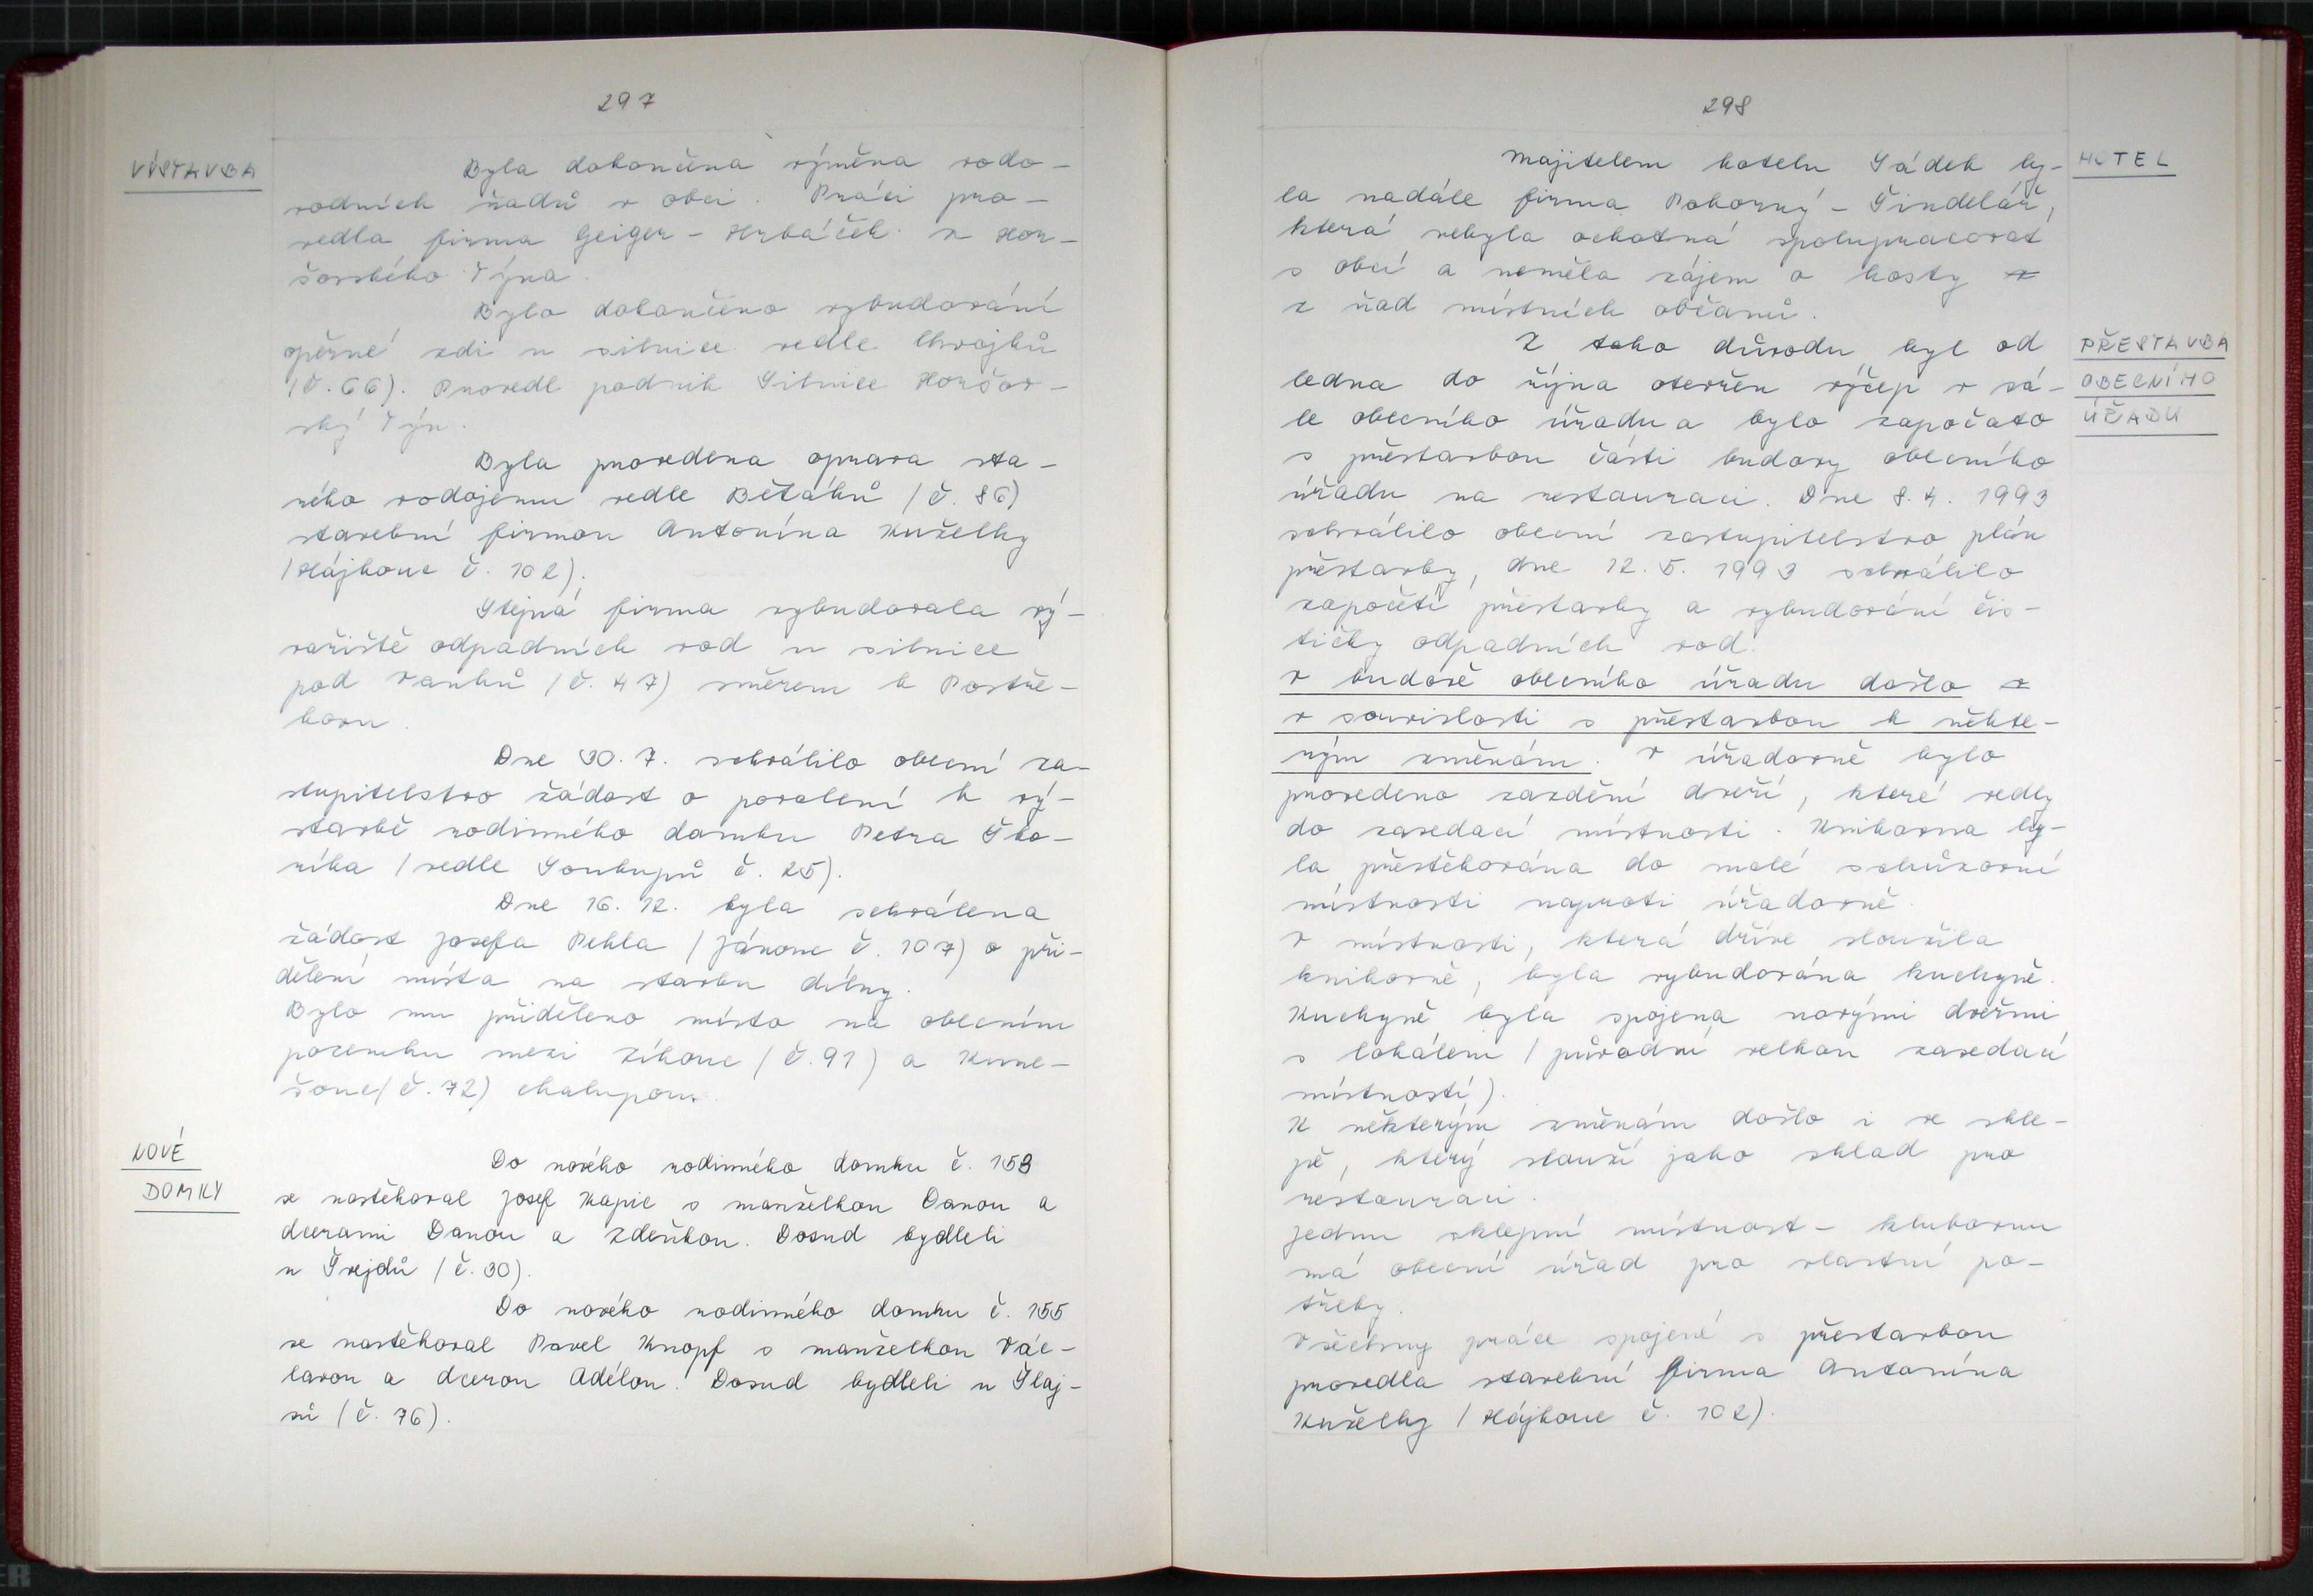 297
VÝSTAVBA
Byla dokončena výměna vodo-
vodních řadů v obci. Práci pro-
vedla firma Geiger - Hrbáček z Hor-
šovského Týna.
Bylo dokončeno vybudování
opěrné zdi u silnice vedle Chvojků
(č. 66). Provedl podnik Silnice Horšov-
ský Týn.
Byla provedena oprava sta-
rého vodojemu vedle Běťáků (č. 86)
stavební firmou Antonína Kuželky
(Hájkouc č. 102).
Stejná firma vybudovala vý-
vařiště odpadních vod u silnice
pod Vanků (č. 47) směrem k Postře-
kovu.
Dne 30. 7. schválilo obecní za-
stupitelstvo žádost o povolení k vý-
stavbě rodinného domku Petra Ško-
říka (vedle Soukupů č. 25).
Dne 16. 12. byla schválena
žádost Josefa Pehla (Jánouc č. 107) o při-
dělení místa na stavbu dílny.
Bylo mu přiděleno místo na obecním
pozemku mezi Zíkouc (č. 91) a Kune-
šouc (č. 72) chalupou.
NOVÉ
DOMKY
Do nového rodinného domku č. 153
se nastěhoval Josef Kapic s manželkou Danou a
dcerami Danou a Zdeňkou. Dosud bydleli
u Švejdů (č. 30).
Do nového rodinného domku č. 155
se nastěhoval Pavel Knopf s manželkou Vác-
lavou a dcerou Adélou. Dosud bydleli u Šlaj-
sů (č. 76).
298
Majitelem hotelu Sádek by-
HOTEL
la nadále firma Pokorný - Šindelář,
která nebyla ochotná spolupracovat
s obcí a neměla zájem o hosty
z řad místních občanů.
Z toho důvodu byl od
PŘESTAVBA
ledna do října otevřen výčep v sá-
OBECNÍHO
le obecního úřadu a bylo započato
ÚŘADU
s přestavbou části budovy obecního
úřadu na restauraci. Dne 8. 4. 1993
schválilo obecní zastupitelstvo plán
přestavby, dne 12. 5. 1993 schválilo
započetí přestavby a vybudování čis-
tičky odpadních vod.
V budově obecního úřadu došlo
v souvislosti s přestavbou k někte-
rým změnám. V úřadovně bylo
provedeno zazdění dveří, které vedly
do zasedací místnosti. Knihovna by-
la přestěhována do malé schůzovní
místnosti naproti úřadovně.
V místnosti, která dříve sloužila
knihovně, byla vybudována kuchyně.
Kuchyně byla spojena novými dveřmi
s lokálem (původní velkou zasedací
místností).
K některým změnám došlo i ve skle-
pě, který slouží jako sklad pro
restauraci.
Jednu sklepní místnost - klubovnu
má obecní úřad pro vlastní po-
třeby.
Všechny práce spojené s přestavbou
provedla stavební firma Antonína
Kuželky (Hájkouc č. 102).